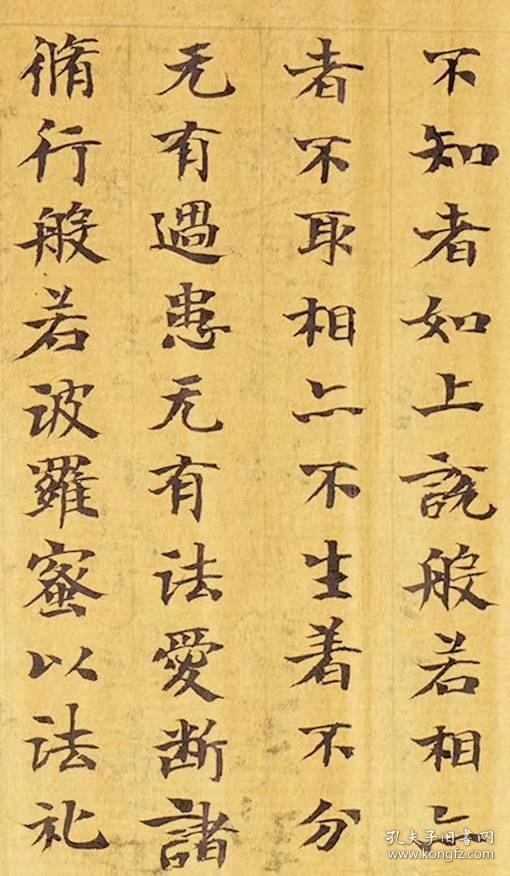 不知者如上説般若相亠
者不取相亦不生著不分
无有過患无有法愛断諸
脩行般若波羅蜜以法礼
孔夫子旧书网
www.kongfz.com